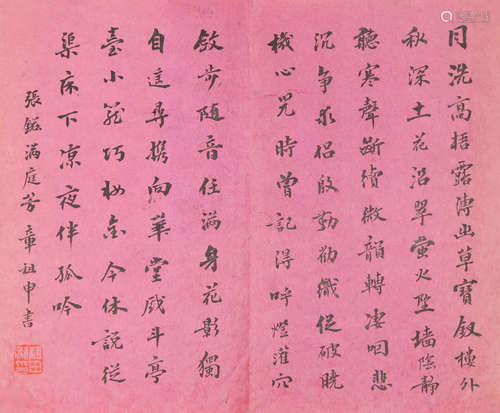 月洗高梧露漙幽草寶釵樓外
秋深土花沿翠螢火墜墻陰靜
聽寒聲斷續微韻轉凄咽悲
沉爭求侶殷勤勸織促破曉
機心兒時曾記得呼燈灌穴
斂步隨音任滿身花影獨
自追尋携向華堂戲斗亭
臺小籠巧妝金今休說從
渠床下凉夜伴孤吟
張鎡滿庭芳 章祖申書